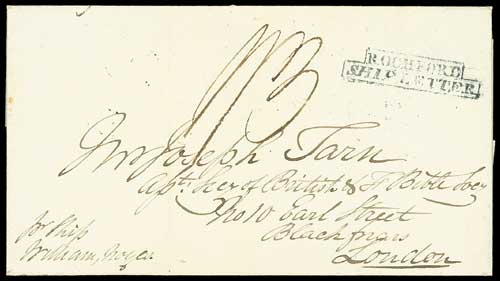 ROCHFORD
SHIP LETTER
Mr Joseph Tarn
Asst. Secy of British & F Bible Socy
No 10 Earl Street
Blackfriars
London
pr Ship
William,